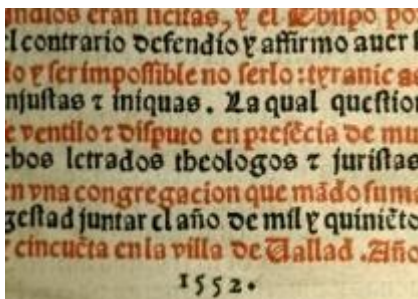 indios eran licitas, y el Obispo po
l contrario defendio y affirmo aver s
do y ser impossible no serlo: tyranicas
njustas ⁊ iniquas. La qual questio
e ventilo ⁊ disputo en presẽcia de mu
chos letrados theologos ⁊ juristas
en vna congregacion que mãdo sum
gestad juntar el año de mil y quiniẽto
y cincuẽta en la villa de Vallad. Año
1552.